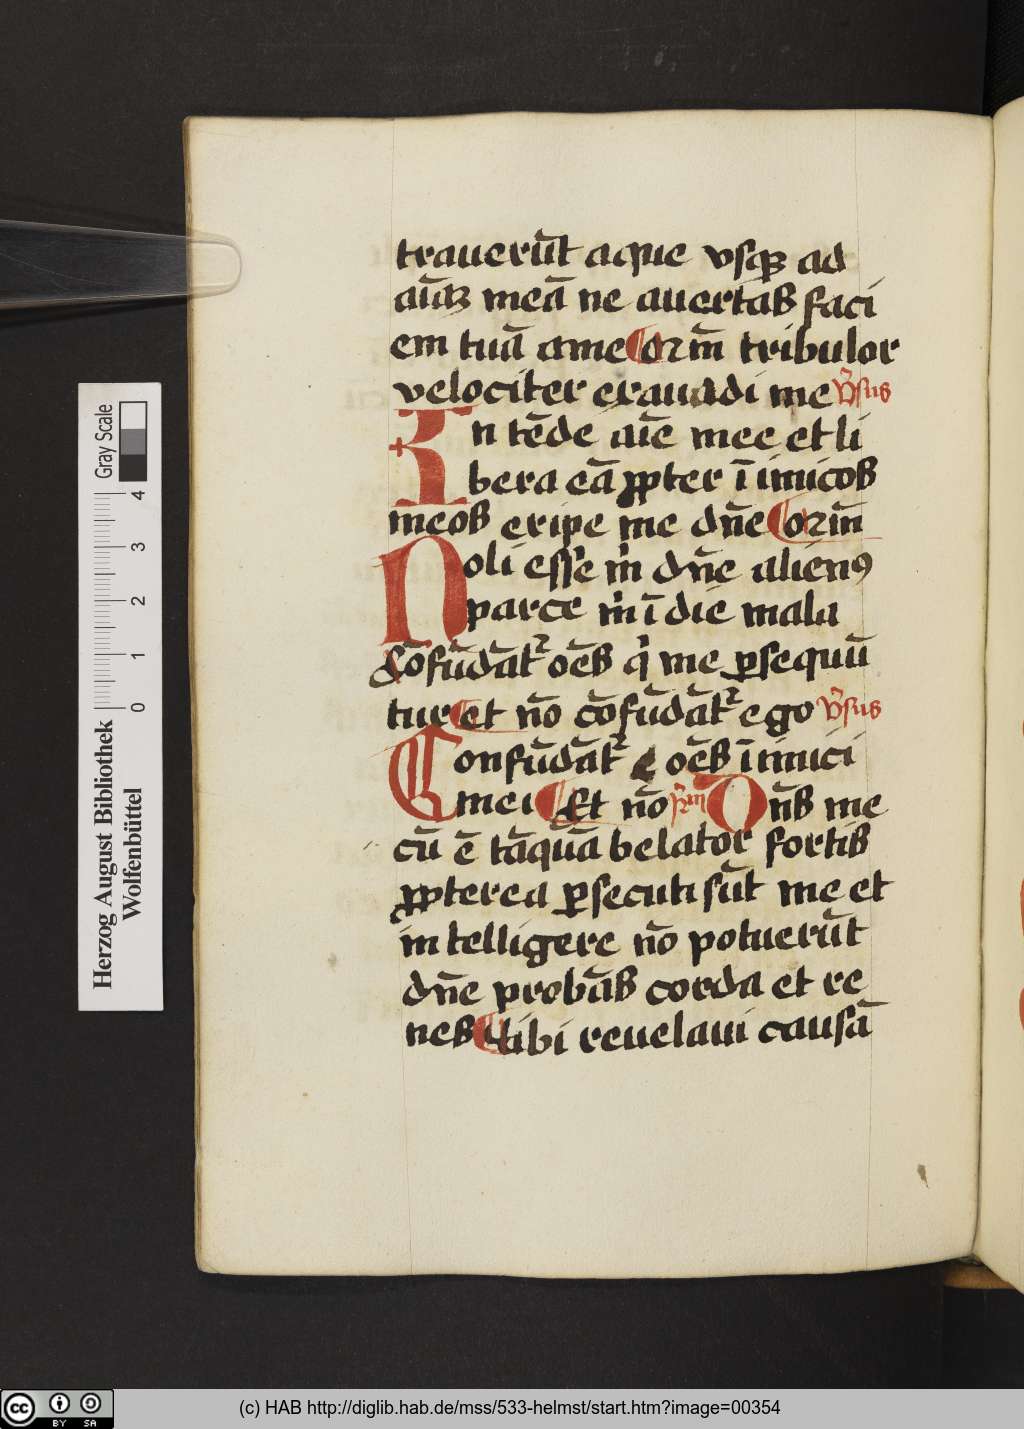 trauerūt aque vsqꝫ ad
aīaꝫ meā ne auertas faci
em tuā a me Qm̄ tribulor
velociter exaudi me v̄sus
In tēde aīe mee et li
bera eā ꝓpter īimicos
meos eripe me dn̄e Qm̄
Noli esse m̄ dn̄e alienꝰ
parce m̄ ī die mala
cōfūdāt᷑ oēs q̇ me ꝑsequū
tur et nō cōfūdāt᷑ ego v̄sus
Confūdāt᷑ oēs īimici
mei Et nō Dn̄s me
cū ē tāquā belator fortis
ꝓpterea ꝑsecuti sūt me et
intelligere nō potuerūt
dn̄e probās corda et re
nes tibi reuelaui causā
Gray Scale
0 1 2 3 4
Herzog August Bibliothek
Wolfenbüttel
cc BY SA
(c) HAB http://diglib.hab.de/mss/533-helmst/start.htm?image=00354